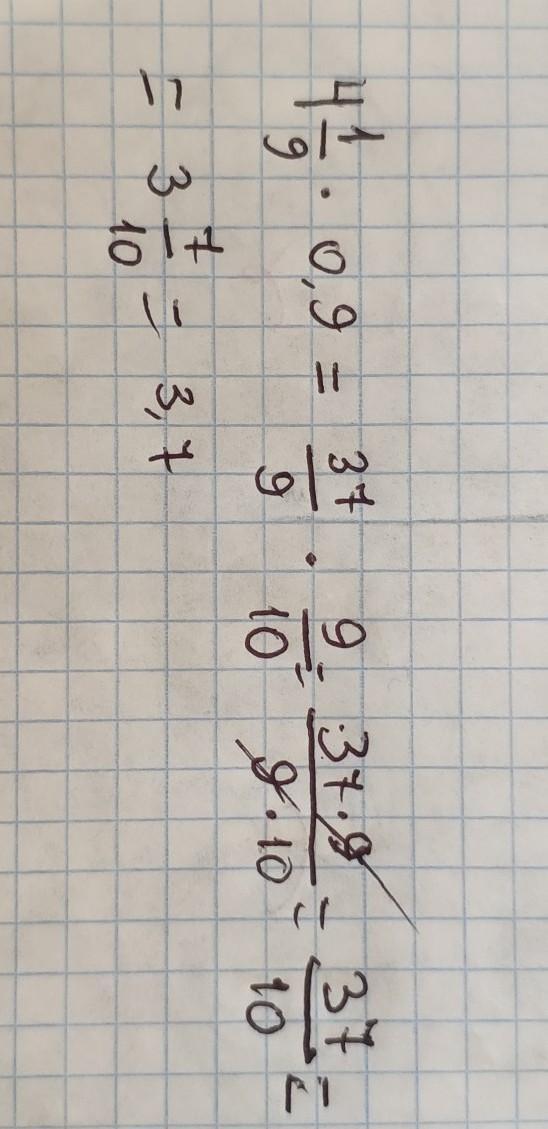 4 1/9 · 0,9 = 37/9 · 9/10 = 37·9/9·10 = 37/10 =
= 3 7/10 = 3,7